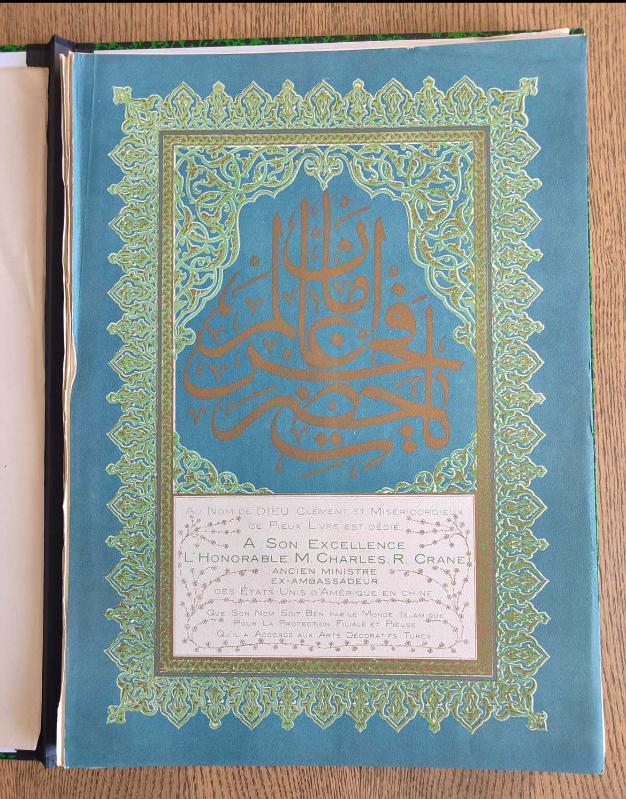 حضرت فخر عالم
AU NOM DE DIEU CLÉMENT ET MISÉRICORDIEUX
CE PIEUX LIVRE EST DÉDIÉ
A SON EXCELLENCE
L'HONORABLE M. CHARLES. R. CRANE
ANCIEN MINISTRE
EX-AMBASSADEUR
DES ÉTATS-UNIS D'AMÉRIQUE EN CHINE
QUE SON NOM SOIT BÉNI PAR LE MONDE ISLAMIQUE
POUR LA PROTECTION FILIALE ET PIEUSE
QU'IL A ACCORDÉ AUX ARTS DÉCORATIFS TURCS